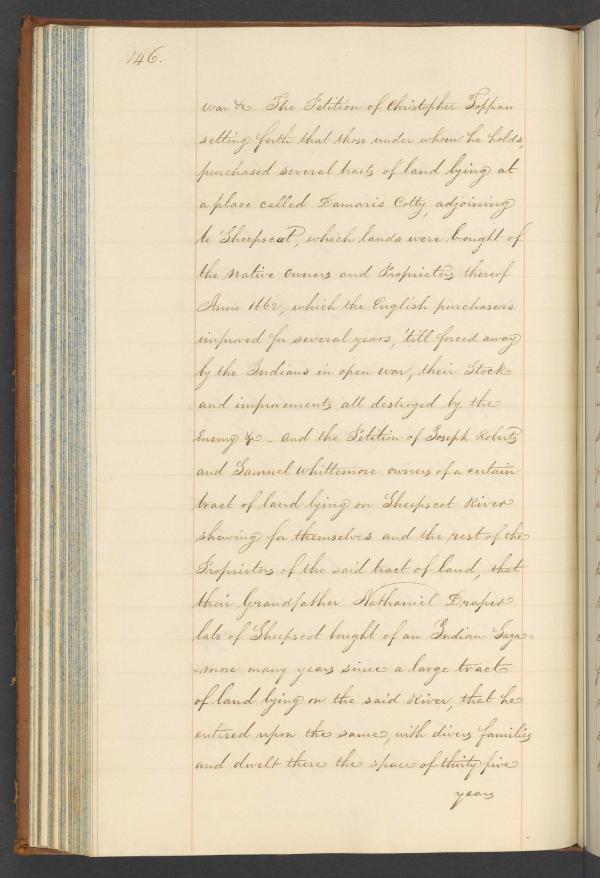 146.
war &c The Petition of Christopher Toppan
setting forth that those under whom he holds,
purchased several tracts of land lying at
a place called Damaris Cotty, adjoining
to Sheepscot, which lands were bought of
the Native Owners and Proprietors thereof
Anno 1662, which the English purchasers
improved for several years, 'till forced away
by the Indians in open war, their Stock
and improvements all destroyed by the
Enemy &c - and the Petition of Joseph Roberts
and Samuel Whittemore owners of a certain
tract of land lying on Sheepscot River
shewing for themselves and the rest of the
Proprietors of the said tract of land, that
their Grandfather Nathaniel Draper
late of Sheepscot bought of an Indian Saga=
=more many years since a large tract
of land lying on the said River, that he
entered upon the same, with divers families
and dwelt there the space of thirty five
years